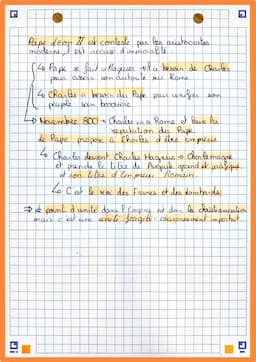 Pape Léon III est contesté par les aristocrates
romains, il est accusé d'immoralité.
↳ Pape se fait attaquer → il a besoin de Charles
pour asseoir son autorité sur Rome.
↳ Charles a besoin du Pape pour unifier son
peuple
↳ Novembre 800 → Charles va à Rome et lave la
réputation du Pape
Le Pape propose à Charles d'être empereur
↳ Charles devient Charles Magnus → Charlemagne
et prends le titre de Auguste grand et pacifique
et son titre d'Empereur Romain.
↳ C'est le roi des Francs et des lombards
⇒ Le point d'unité dans l'Empire est donc la christianisation
mais c'est une unité fragile : couronnement important